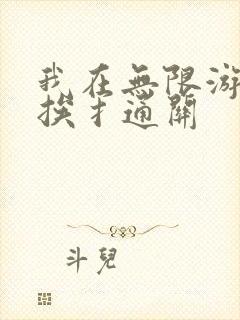 我在無限游
挨扌通關
斗兒